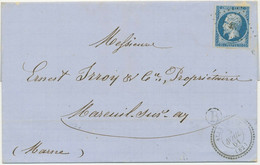 Messieurs
Ernest Irroy & Cie, Propriétaire
Mareuil-sur-ay
(Marne)